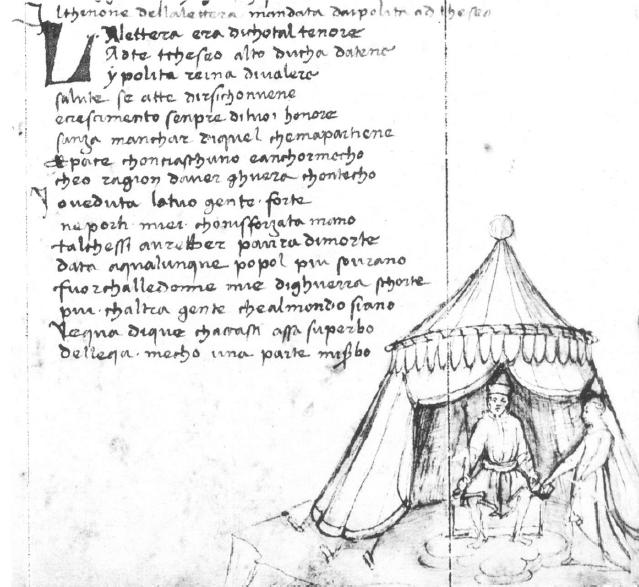 lthinone della lettera mandata daipolita ad theseo
Lalettera era dichotal tenore
Adte ttheseo alto ducha datene
ypolita reina divalore
salute se atte dirsichonvene
ecrescimento senpre dituoi honore
sanza manchar diquel chemapartiene
& pace chonciaschuno eanchormecho
cheo ragion daver ghuera chontecho
Ioveduta latuo gente forte
ne porti miei chonisforzata mano
talchessi avrebber paura dimorte
data aqualunque popol piu sovrano
fuorchalledonne mie dighuerra schorte
piu chaltra gente chealmondo siano
lequa dique chacasti assa superbo
delleqa mecho una parte